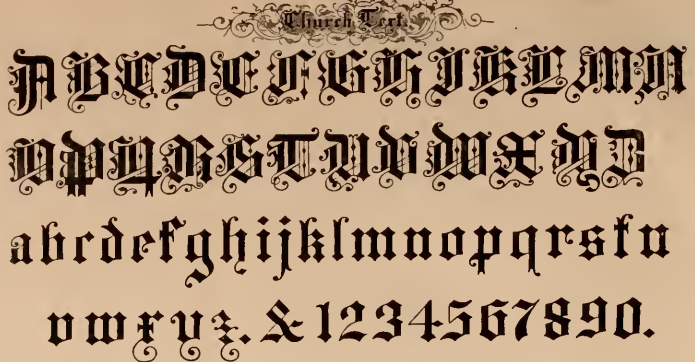 Church Text.
A B C D E F G H I K L M N
O P Q R S T U V W X Y Z
a b c d e f g h i j k l m n o p q r s t u
v w x y z. & 1 2 3 4 5 6 7 8 9 0.